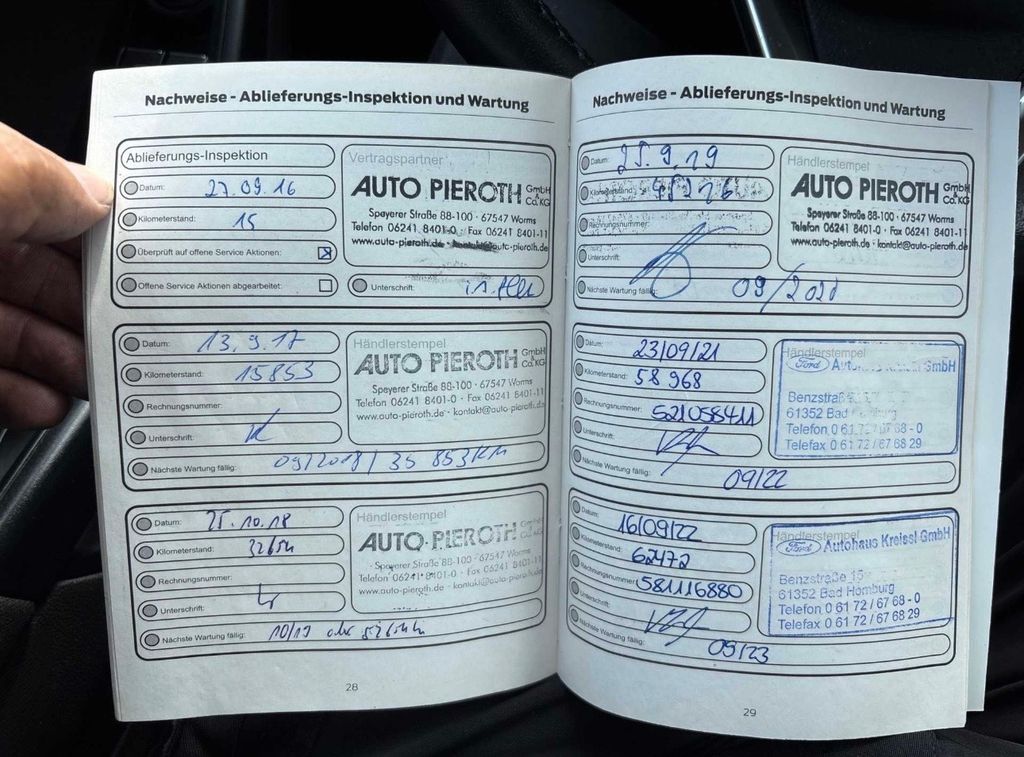 Nachweise - Ablieferungs-Inspektion und Wartung
Ablieferungs-Inspektion
Datum: 27.09.16
Kilometerstand: 15
Überprüft auf offene Service Aktionen:
Offene Service Aktionen abgearbeitet:
Vertragspartner
AUTO PIEROTH GmbH & Co. KG
Speyerer Straße 88-100 · 67547 Worms
Telefon 06241 8401-0 · Fax 06241 8401-11
www.auto-pieroth.de · kontakt@auto-pieroth.de
Unterschrift:
Datum: 13.9.17
Kilometerstand: 15853
Rechnungsnummer:
Unterschrift:
Nächste Wartung fällig: 09/2018 / 35 853KM
Händlerstempel
AUTO PIEROTH GmbH & Co. KG
Speyerer Straße 88-100 · 67547 Worms
Telefon 06241 8401-0 · Fax 06241 8401-11
www.auto-pieroth.de · kontakt@auto-pieroth.de
Datum: 25.10.18
Kilometerstand:
Rechnungsnummer:
Unterschrift:
Nächste Wartung fällig: 10/19
Händlerstempel
AUTO PIEROTH
Speyerer Straße 88-100 · 67547 Worms
Telefon 06241 8401-0 · Fax 06241 8401-11
www.auto-pieroth.de · kontakt@auto-pieroth.de
28
Nachweise - Ablieferungs-Inspektion und Wartung
Datum: 25.9.19
Kilometerstand:
Rechnungsnummer:
Unterschrift:
Nächste Wartung fällig: 09/2020
Händlerstempel
AUTO PIEROTH GmbH & Co. KG
Speyerer Straße 88-100 · 67547 Worms
Telefon 06241 8401-0 · Fax 06241 8401-11
www.auto-pieroth.de · kontakt@auto-pieroth.de
Datum: 23/09/21
Kilometerstand: 58 968
Rechnungsnummer: 521058411
Unterschrift:
Nächste Wartung fällig: 09/22
Händlerstempel
Ford Autohaus Kreissl GmbH
Benzstraße
61352 Bad Homburg
Telefon 0 61 72 / 67 68 - 0
Telefax 0 61 72 / 67 68 29
Datum: 16/09/22
Kilometerstand: 62472
Rechnungsnummer: 581116880
Unterschrift:
Nächste Wartung fällig: 09/23
Händlerstempel
Ford Autohaus Kreissl GmbH
Benzstraße 15
61352 Bad Homburg
Telefon 0 61 72 / 67 68 - 0
Telefax 0 61 72 / 67 68 29
29